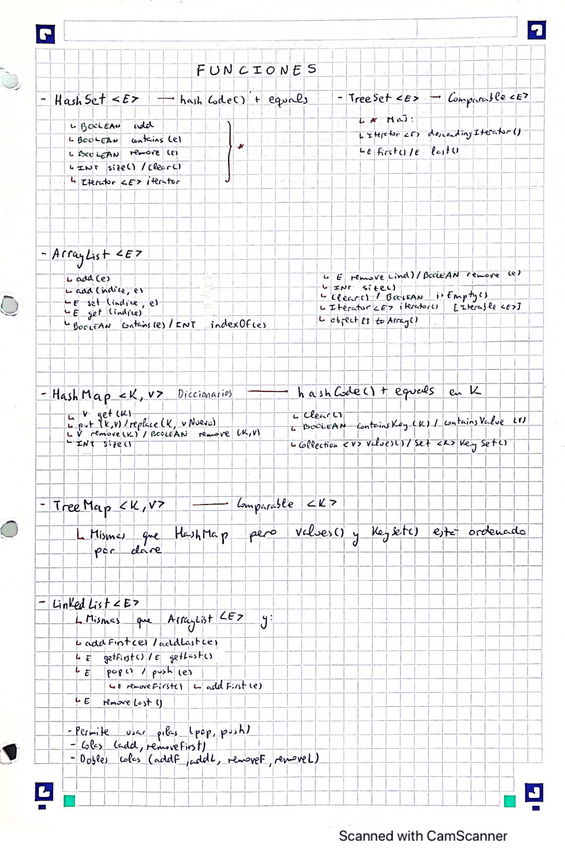 FUNCIONES
- HashSet <E> → hashCode() + equals
↳ BOOLEAN add
↳ BOOLEAN contains (e)
↳ BOOLEAN remove (e)
↳ INT size() / clear()
↳ Iterator <E> iterator
*
- TreeSet <E> → Comparable <E>
↳ * Mas:
↳ Iterator <E> descendingIterator()
↳ E first() / E last()
- ArrayList <E>
↳ add(e)
↳ add(indice, e)
↳ E set (indice, e)
↳ E get (indice)
↳ BOOLEAN contains(e) / INT indexOf(e)
↳ E remove(ind) / BOOLEAN remove (e)
↳ INT size()
↳ clear() / BOOLEAN isEmpty()
↳ Iterator <E> iterator() [Iterable <E>]
↳ object[] toArray()
- HashMap <K, V> Diccionarios — hashCode() + equals en K
↳ V get (K)
↳ put (K,V) / replace (K, vNuevo)
↳ V remove(K) / BOOLEAN remove (K,V)
↳ INT size()
↳ clear()
↳ BOOLEAN containsKey (K) / containsValue (V)
↳ Collection <V> values() / Set <K> KeySet()
- TreeMap <K, V> — Comparable <K>
↳ Mismas que HashMap pero values() y KeySet() está ordenado
por clave
- LinkedList <E>
↳ Mismas que ArrayList <E> y:
↳ addFirst(e) / addLast(e)
↳ E getFirst() / E getLast()
↳ E pop() / push (e)
↳ E removeFirst() ↳ addFirst(e)
↳ E removeLast ()
- Permite usar pilas (pop, push)
- Colas (add, removeFirst)
- Dobles colas (addF, addL, removeF, removeL)
Scanned with CamScanner